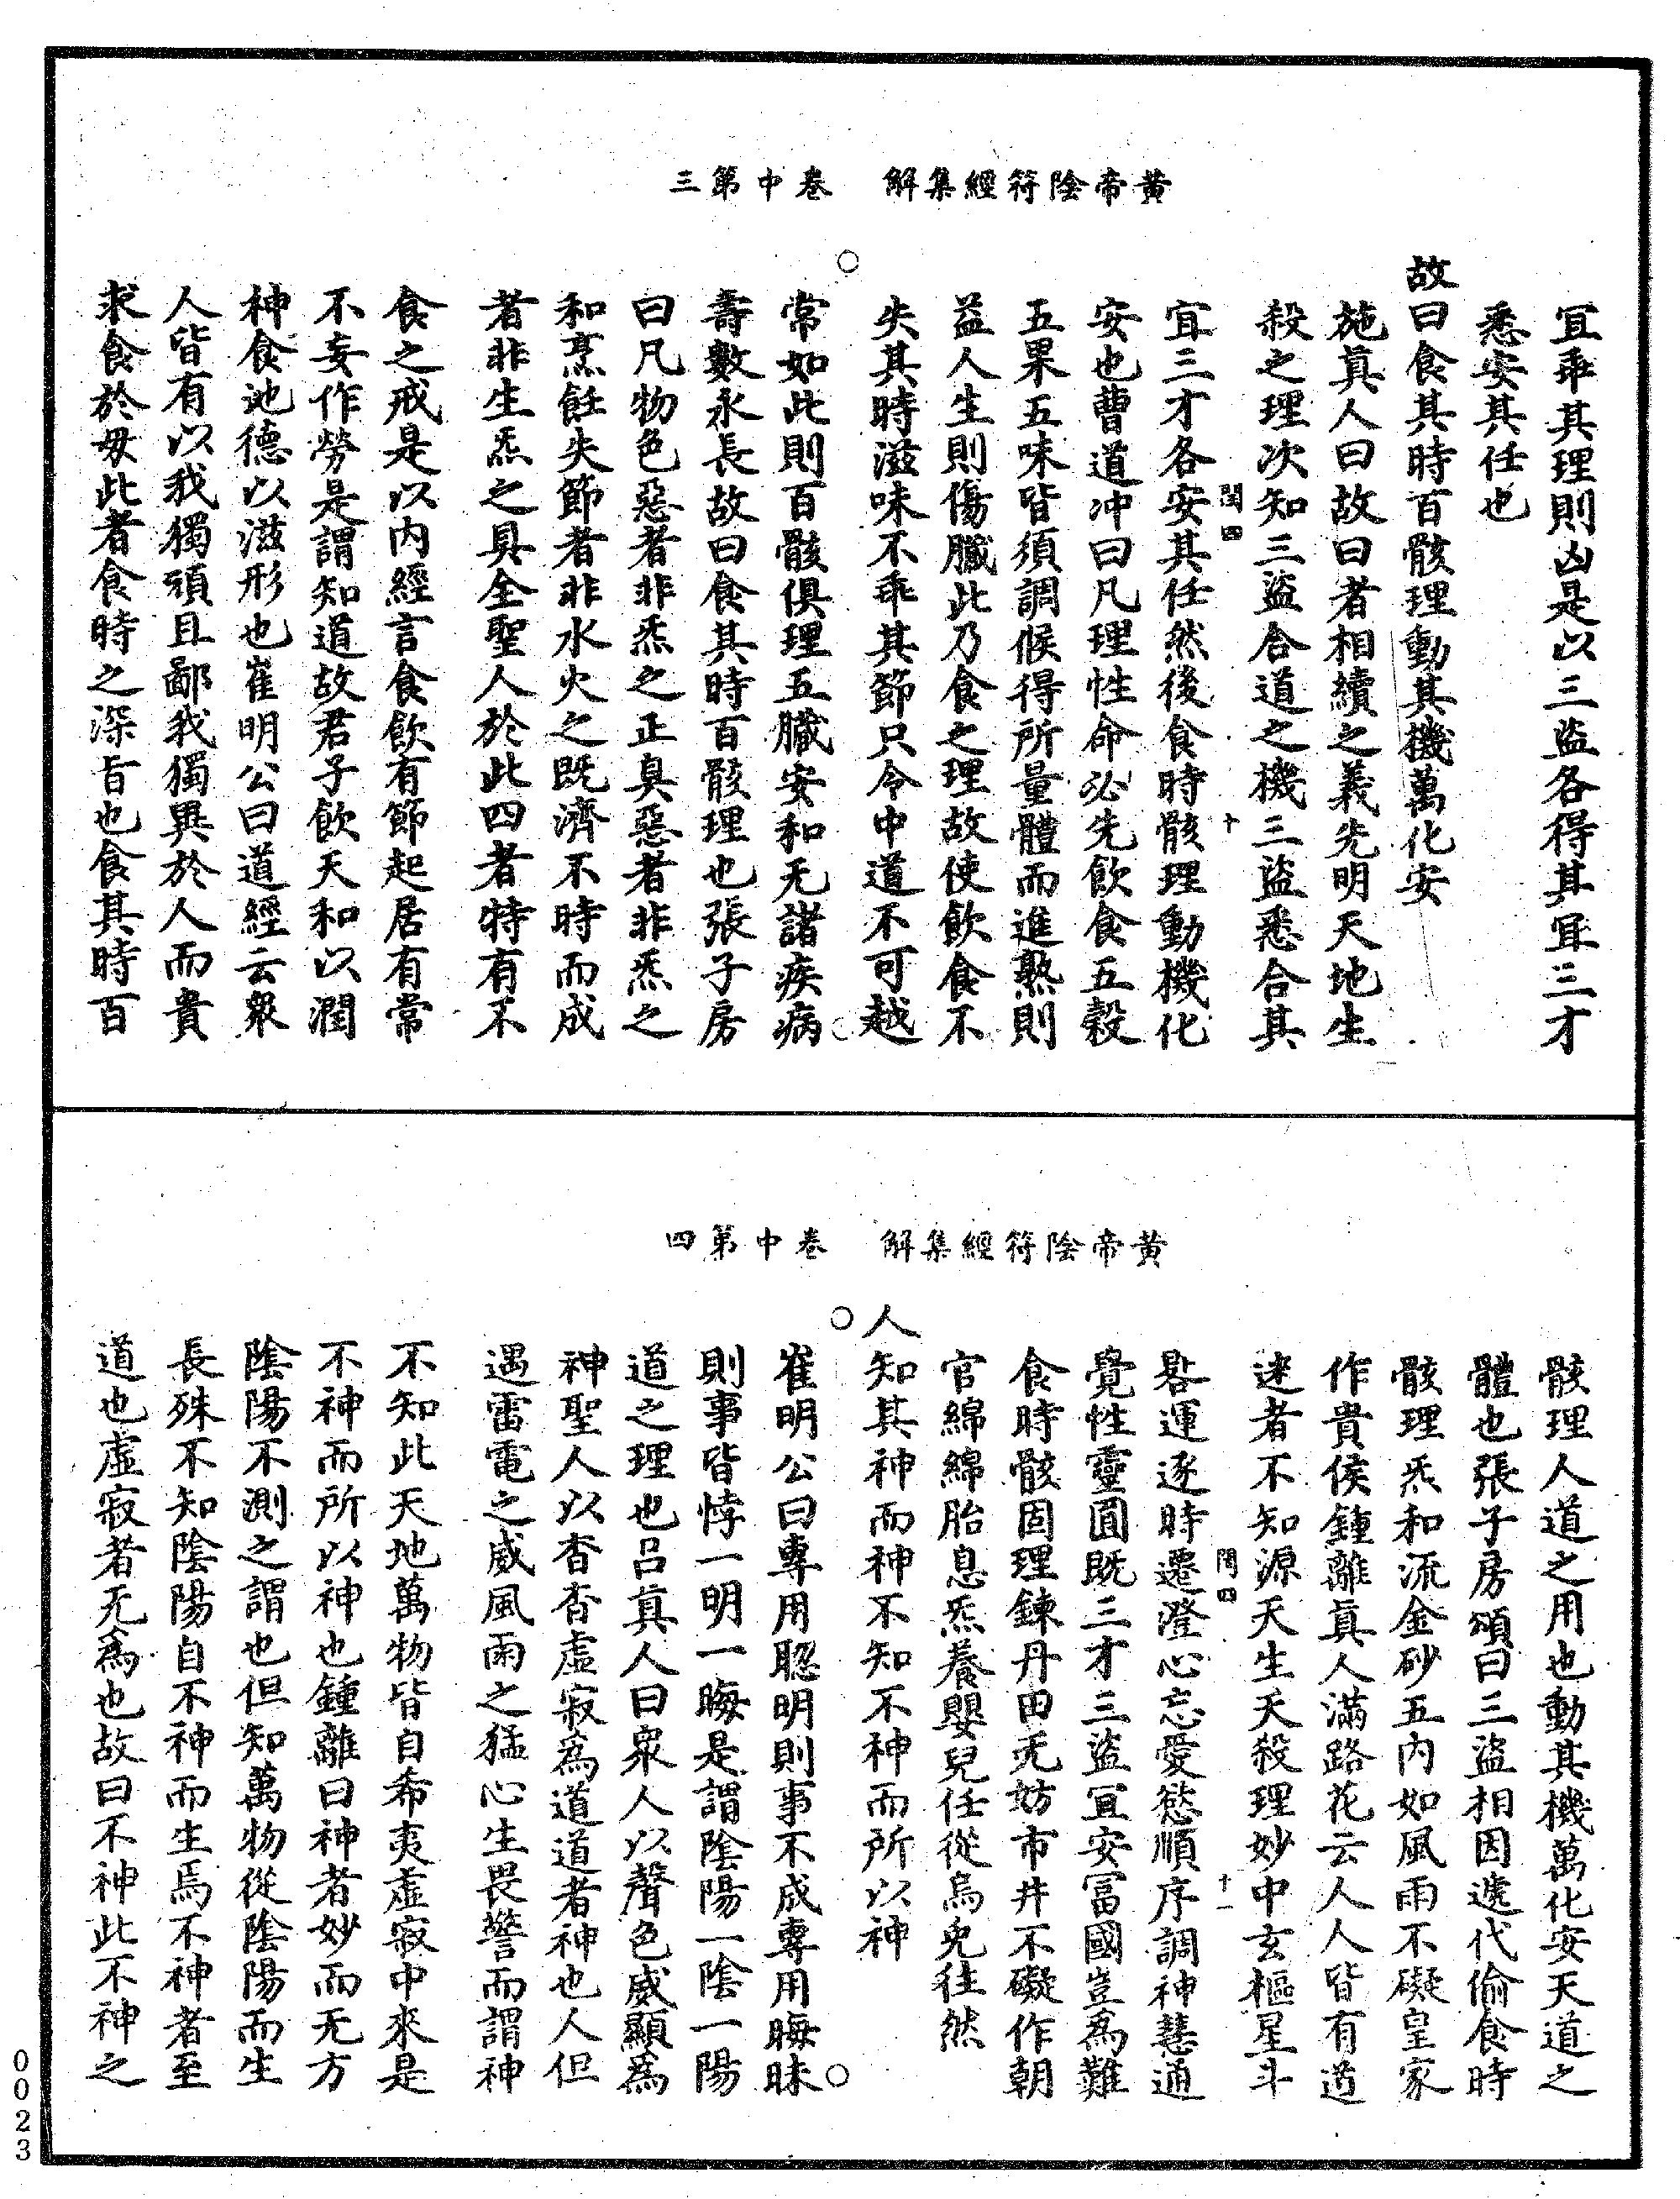 黃帝陰符經集解　卷中第三
宜乖其理則凶是以三盜各得其宜三才
悉安其任也
故曰食其時百骸理動其機萬化安
施真人曰故曰者相續之義先明天地生
殺之理次知三盜合道之機三盜悉合其
閏四　十
宜三才各安其任然後食時骸理動機化
安也曹道冲曰凡理性命必先飲食五穀
五果五味皆須調候得所量體而進熟則
益人生則傷臟此乃食之理故使飲食不
失其時滋味不乖其節只令中道不可越
常如此則百骸俱理五臟安和无諸疾病
壽數永長故曰食其時百骸理也張子房
曰凡物色惡者非炁之正臭惡者非炁之
和烹飪失節者非水火之既濟不時而成
者非生炁之具全聖人於此四者特有不
食之戒是以内經言食飲有節起居有常
不妄作勞是謂知道故君子飲天和以潤
神食池德以滋形也崔明公曰道經云衆
人皆有以我獨頑且鄙我獨異於人而貴
求食於母此者食時之深旨也食其時百
黃帝陰符經集解　卷中第四
骸理人道之用也動其機萬化安天道之
體也張子房頌曰三盜相因遞代偷食時
骸理炁和流金砂五内如風雨不礙皇家
作貴侯鍾離真人滿路花云人人皆有道
迷者不知源天生天殺理妙中玄樞星斗
閏四　十一
晷運逐時遷澄心忘愛慾順序調神慧通
覺性靈圓既三才三盜宜安冨國豈為難
食時骸固理鍊丹田无妨市井不礙作朝
官綿綿胎息炁養嬰兒任從烏兔往然
人知其神而神不知不神而所以神
崔明公曰專用聰明則事不成專用晦昧
則事皆悖一明一晦是謂陰陽一陰一陽
道之理也吕真人曰衆人以聲色威顯為
神聖人以杳杳虛寂為道道者神也人但
遇雷電之威風雨之猛心生畏警而謂神
不知此天地萬物皆自希夷虛寂中來是
不神而所以神也鍾離曰神者妙而无方
陰陽不測之謂也但知萬物從陰陽而生
長殊不知陰陽自不神而生焉不神者至
道也虛寂者无為也故曰不神此不神之
0023